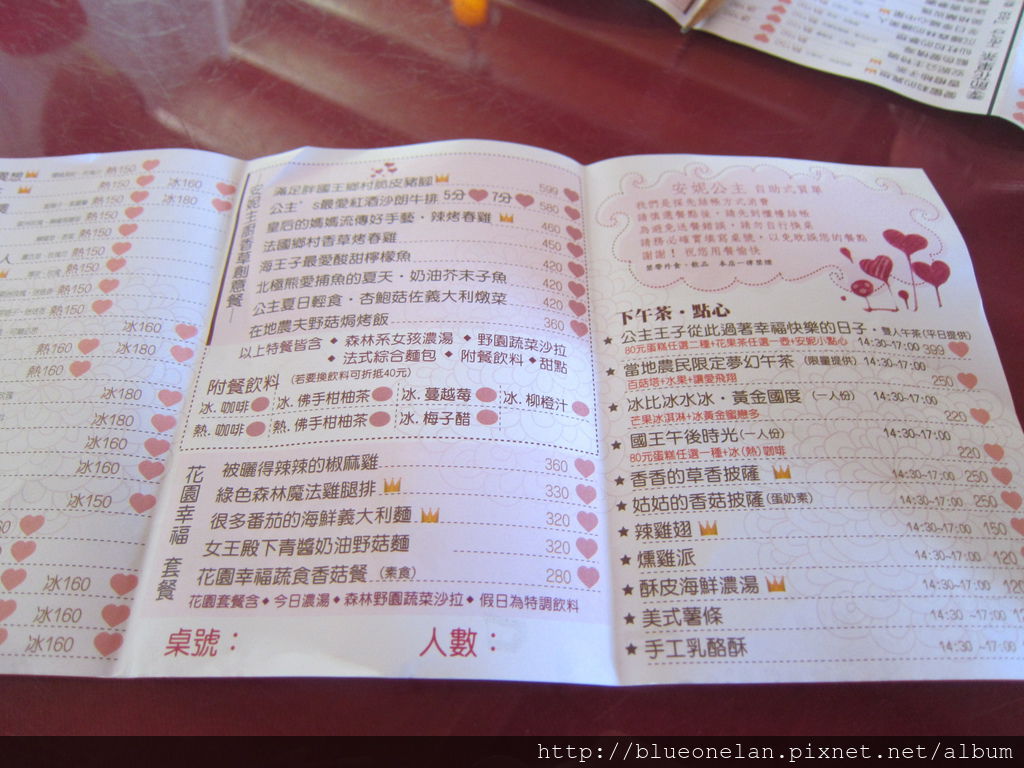 熱150
熱150 冰160
熱150 冰180
熱150
熱150
熱150
熱150
熱150 冰160
熱160 冰180
熱160
冰180
冰180
冰160
冰160
冰150
冰160
冰160
冰160
滿足胖國王鄉村脆皮豬腳 599
公主's最愛紅酒沙朗牛排 5分 7分 580
皇后的媽媽流傳好手藝・辣烤春雞 460
法國鄉村香草烤春雞 450
海王子最愛酸甜檸檬魚 420
北極熊愛捕魚的夏天・奶油芥末子魚 420
公主夏日輕食・杏鮑菇佐義大利燉菜 420
在地農夫野菇焗烤飯 360
以上特餐皆含 ◆ 森林系女孩濃湯 ◆ 野園蔬菜沙拉
◆ 法式綜合麵包 ◆ 附餐飲料 ◆ 甜點
附餐飲料 (若要換飲料可折抵40元)
冰.咖啡 冰.佛手柑柚茶 冰.蔓越莓 冰.柳橙汁
熱.咖啡 熱.佛手柑柚茶 冰.梅子醋
花園幸福 套餐
被曬得辣辣的椒麻雞 360
綠色森林魔法雞腿排 330
很多番茄的海鮮義大利麵 320
女王殿下青醬奶油野菇麵 320
花園幸福蔬食香菇餐 (素食) 280
花園套餐含 ◆ 今日濃湯 ◆ 森林野園蔬菜沙拉 ◆ 假日為特調飲料
桌號： 人數：
安妮公主 自助式買單
我們是採先結帳方式消費
請慎選餐點後，請先到櫃檯結帳
為避免送餐錯誤，請勿自行換桌
請務必確實填寫桌號，以免耽誤您的餐點
謝謝！祝您用餐愉快
禁帶外食、飲品 本店一律禁煙
下午茶・點心
★ 公主王子從此過著幸福快樂的日子・雙人午茶(平日提供)
80元蛋糕任選二種+花果茶任選一壺+安妮小點心 14:30~17:00 399
★ 當地農民限定夢幻午茶 (限量提供) 14:30~17:00
百菇塔+水果+讓愛飛翔 250
★ 冰比冰水冰・黃金國度 (一人份) 14:30~17:00
芒果冰淇淋+冰黃金蜜戀多 220
★ 國王午後時光(一人份) 14:30~17:00
80元蛋糕任選一種+冰(熱)咖啡 220
★ 香香的草香披薩 14:30~17:00 250
★ 姑姑的香菇披薩(蛋奶素) 14:30~17:00 250
★ 辣雞翅 14:30~17:00 150
★ 燻雞派 14:30~17:00 120
★ 酥皮海鮮濃湯 14:30~17:00 120
★ 美式薯條 14:30~17:00
★ 手工乳酪酥 14:30~17:00
http://blueonelan.pixnet.net/album